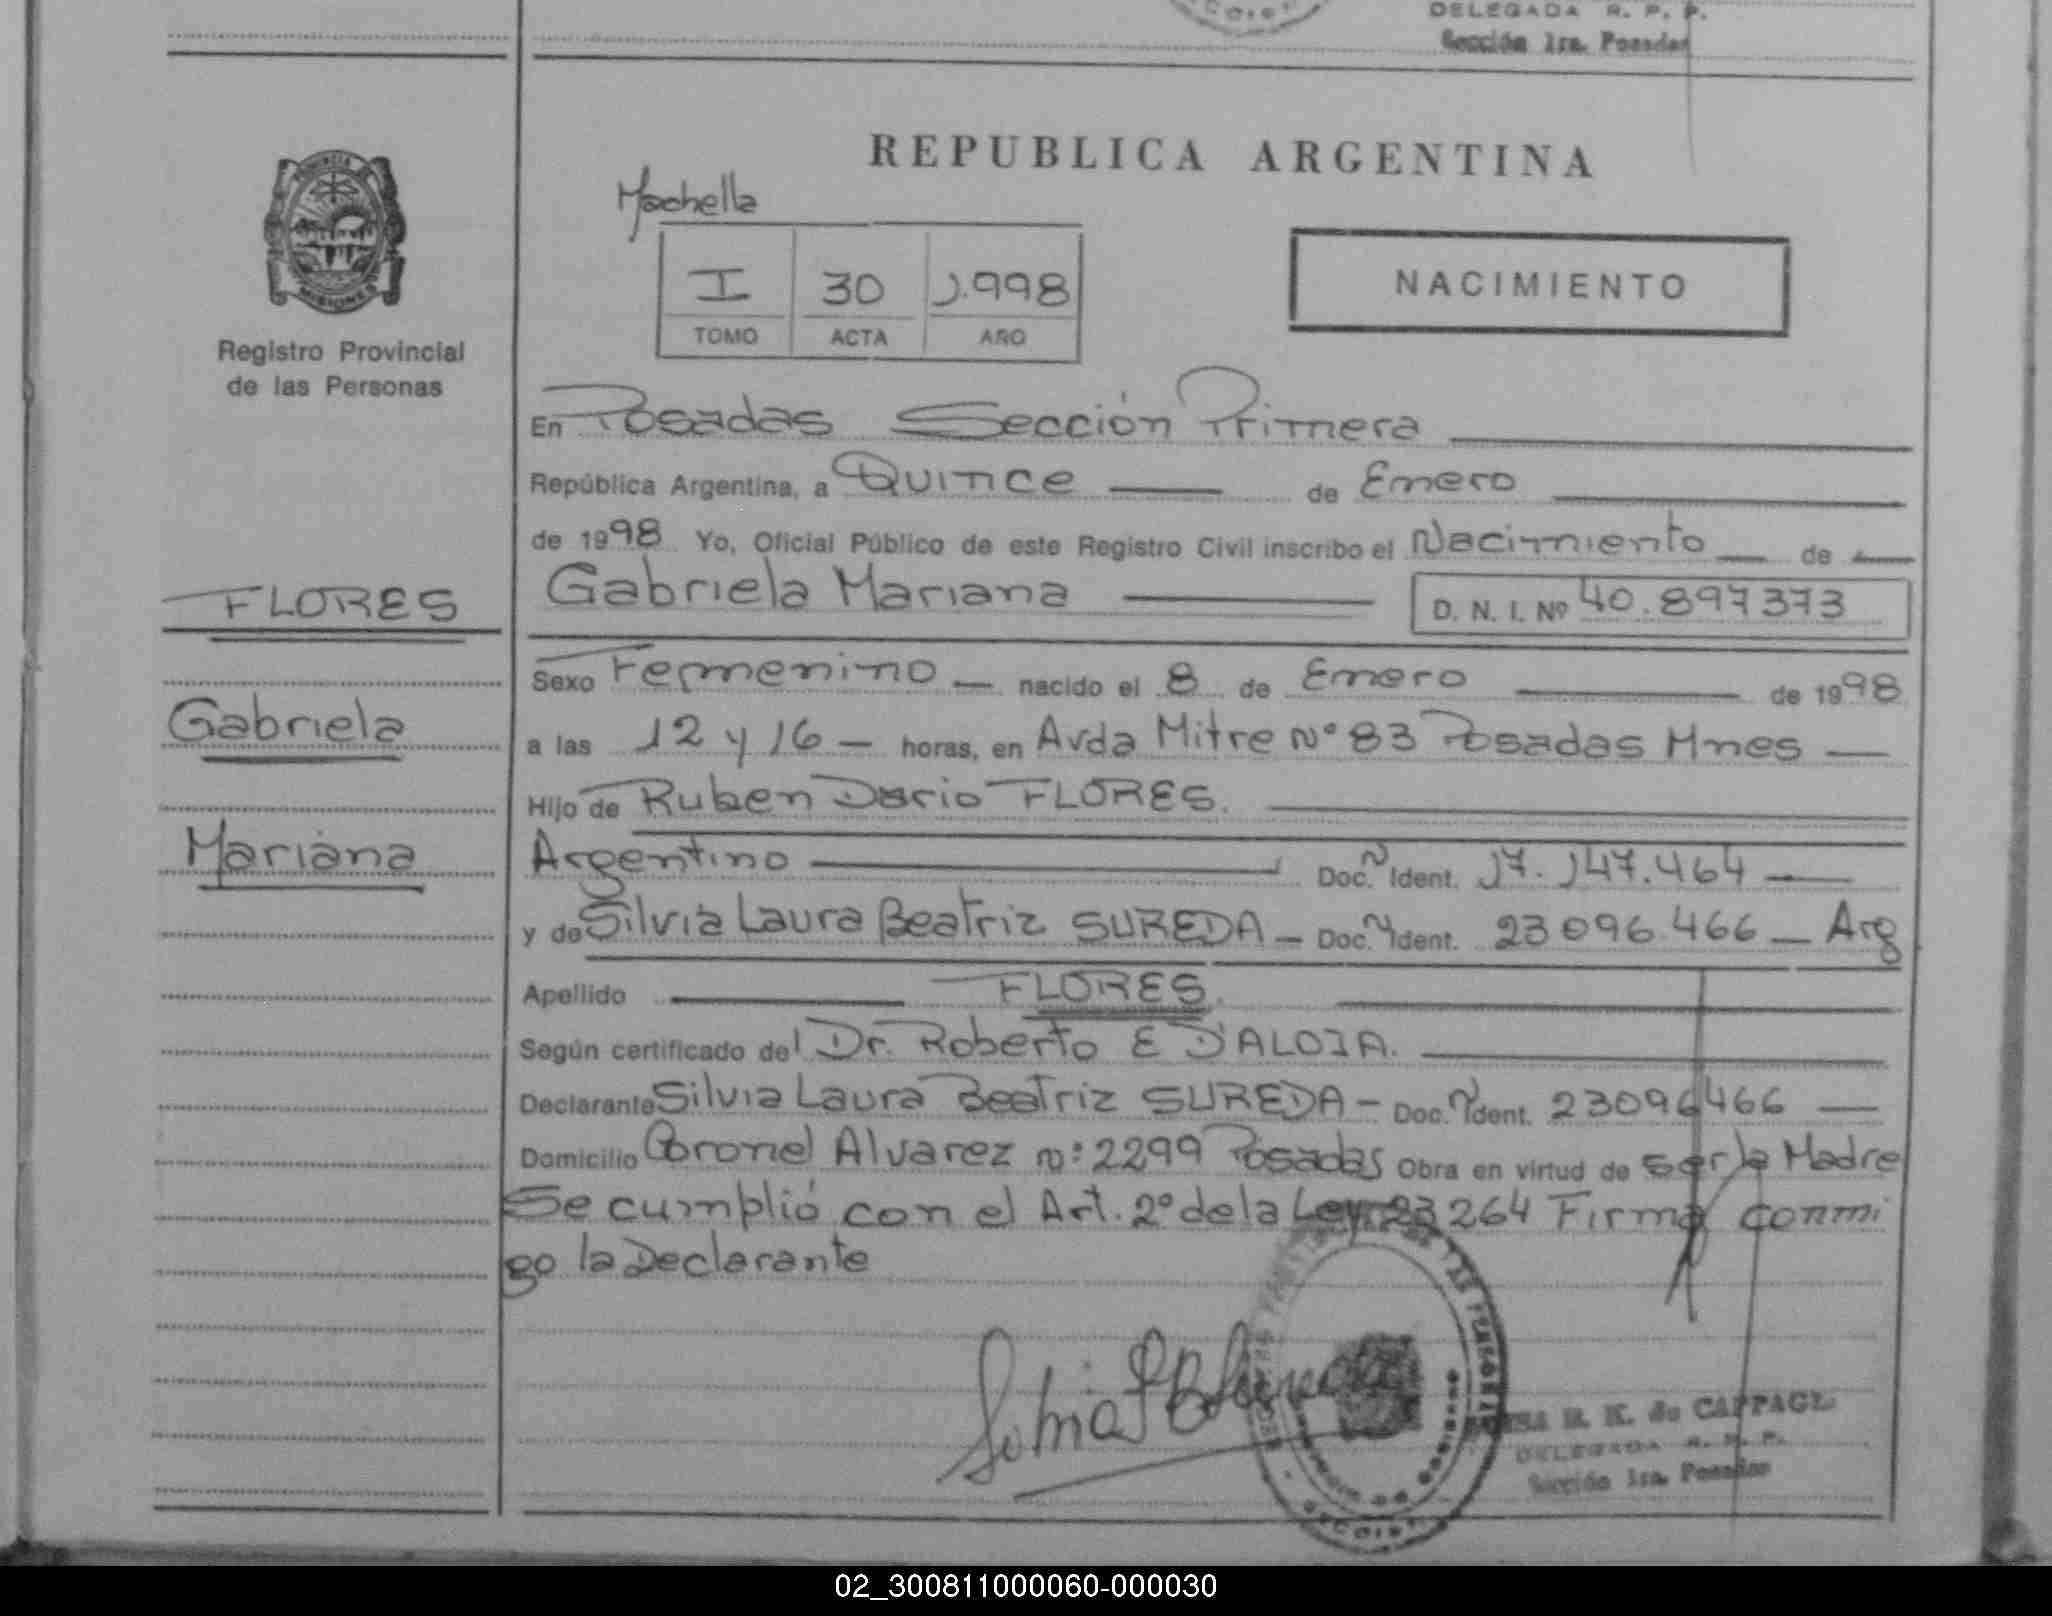 DELEGADA R. P. P.
Sección 1ra. Posadas
REPUBLICA ARGENTINA
PROVINCIA DE
MISIONES
Registro Provincial
de las Personas
Mochella
I 30 1.998
TOMO ACTA AÑO
NACIMIENTO
En Posadas Sección Primera
República Argentina, a Quince de Enero
de 1998 Yo, Oficial Público de este Registro Civil inscribo el Nacimiento de
Gabriela Mariana D. N. I. Nº 40.897373
FLORES
Gabriela
Mariana
Sexo Femenino nacido el 8 de Enero de 1998
a las 12 y 16 horas, en Avda Mitre Nº 83 Posadas Mnes
Hijo de Ruben Dario FLORES.
Argentino Doc. Ident. 17.147.464
y de Silvia Laura Beatriz SUREDA Doc. Ident. 23096.466 Arg
Apellido FLORES.
Según certificado del Dr. Roberto E D'ALOIA.
Declarante Silvia Laura Beatriz SUREDA Doc. Ident. 23096466
Domicilio Coronel Alvarez Nº: 2299 Posadas Obra en virtud de ser la Madre
Se cumplió con el Art. 2º de la Ley 23264 Firma conmi
go la Declarante
R. K. de CAPPAGL
DELEGADA R. P. P.
Sección 1ra. Posadas
02_300811000060-000030